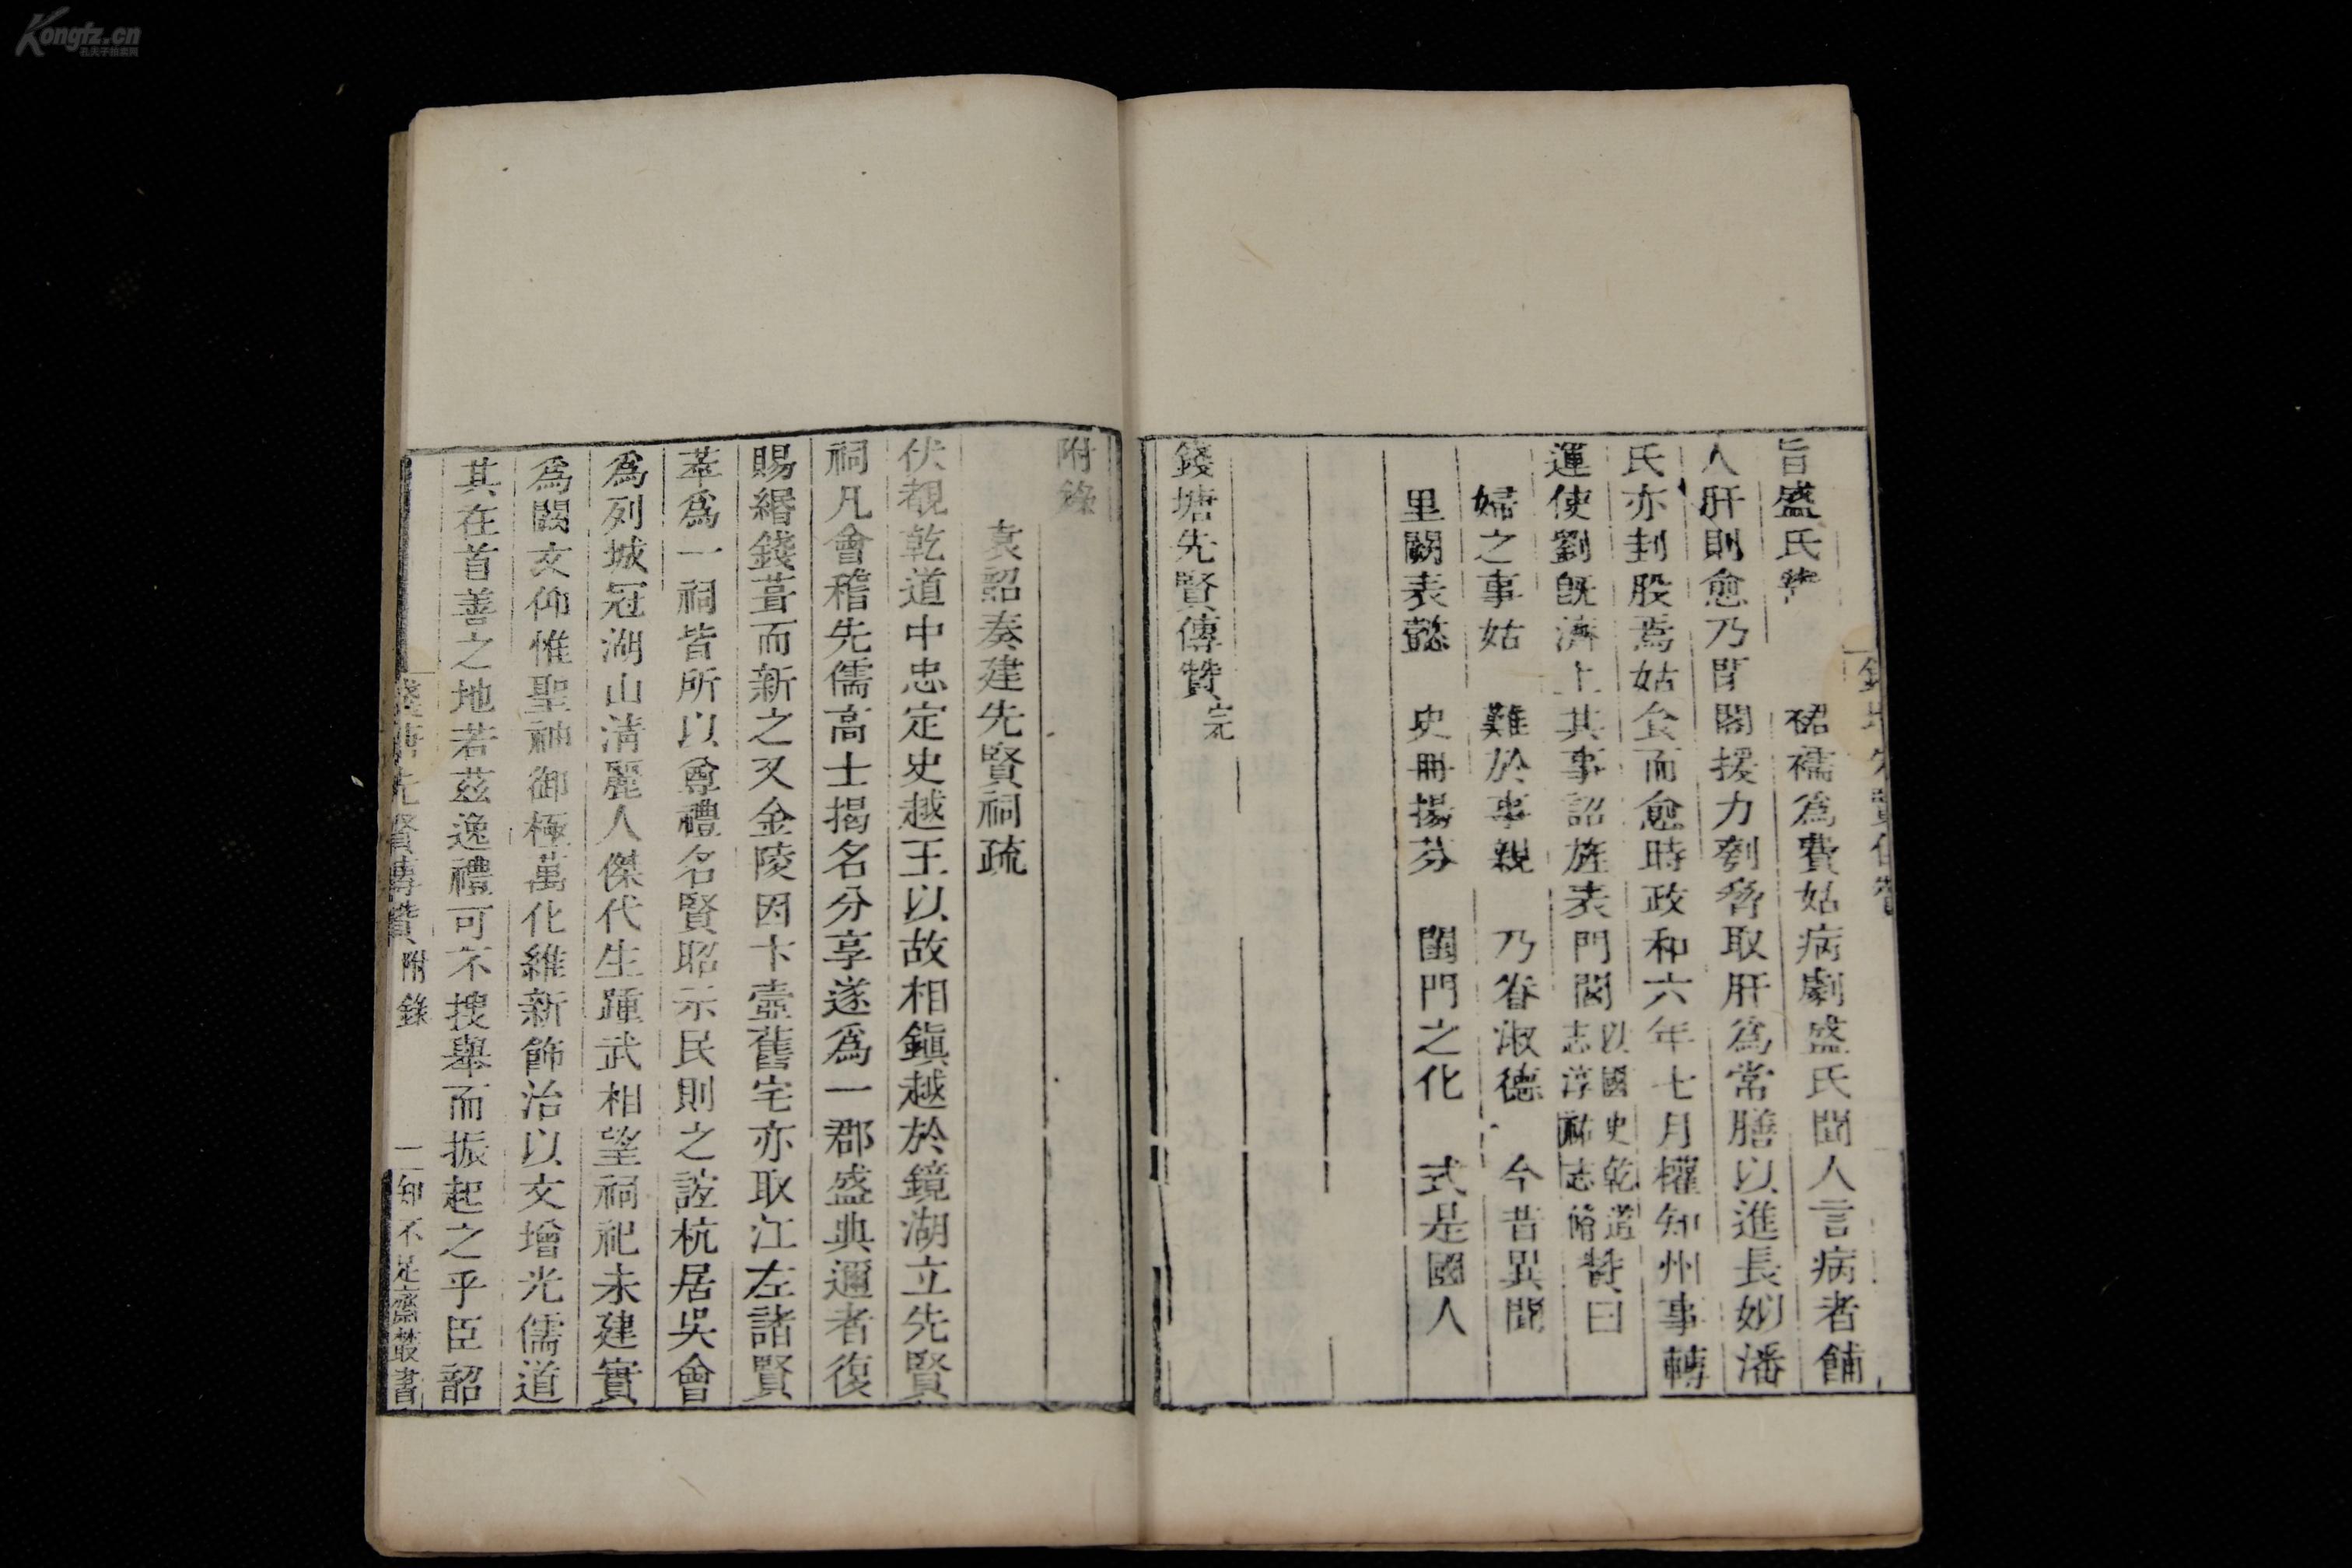 旨盛氏 裙襦爲費姑病劇盛氏聞人言病者餔
人肝則愈乃閉閣援力刳脅取肝爲常膳以進長姒潘
氏亦刲股焉姑食而愈時政和六年七月權知州事轉
運使劉旣濟上其事詔旌表門閭以國史乾道志淳祐志脩贊曰
婦之事姑 難於事親 乃眷淑德 今昔異聞
里閈表懿 史冊揚芬 閨門之化 式是國人
錢塘先賢傳贊完
附錄
袁韶奏建先賢祠疏
伏覩乾道中忠定史越王以故相鎭越於鏡湖立先賢
祠凡會稽先儒高士揭名分享遂爲一郡盛典邇者復
賜緡錢葺而新之又金陵因卞壼舊宅亦取江左諸賢
萃爲一祠皆所以尊禮名賢昭示民則之誼杭居吳會
爲列城冠湖山淸麗人傑代生踵武相望祠祀未建實
爲闕文仰惟聖神御極萬化維新飾治以文增光儒道
其在首善之地若茲逸禮可不搜舉而振起之乎臣韶
錢塘先賢傳贊 附錄 二 知不足齋叢書
Kongfz.cn
孔夫子拍卖网